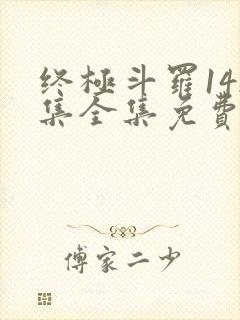 终極斗羅14
集全集免費
傅家二少